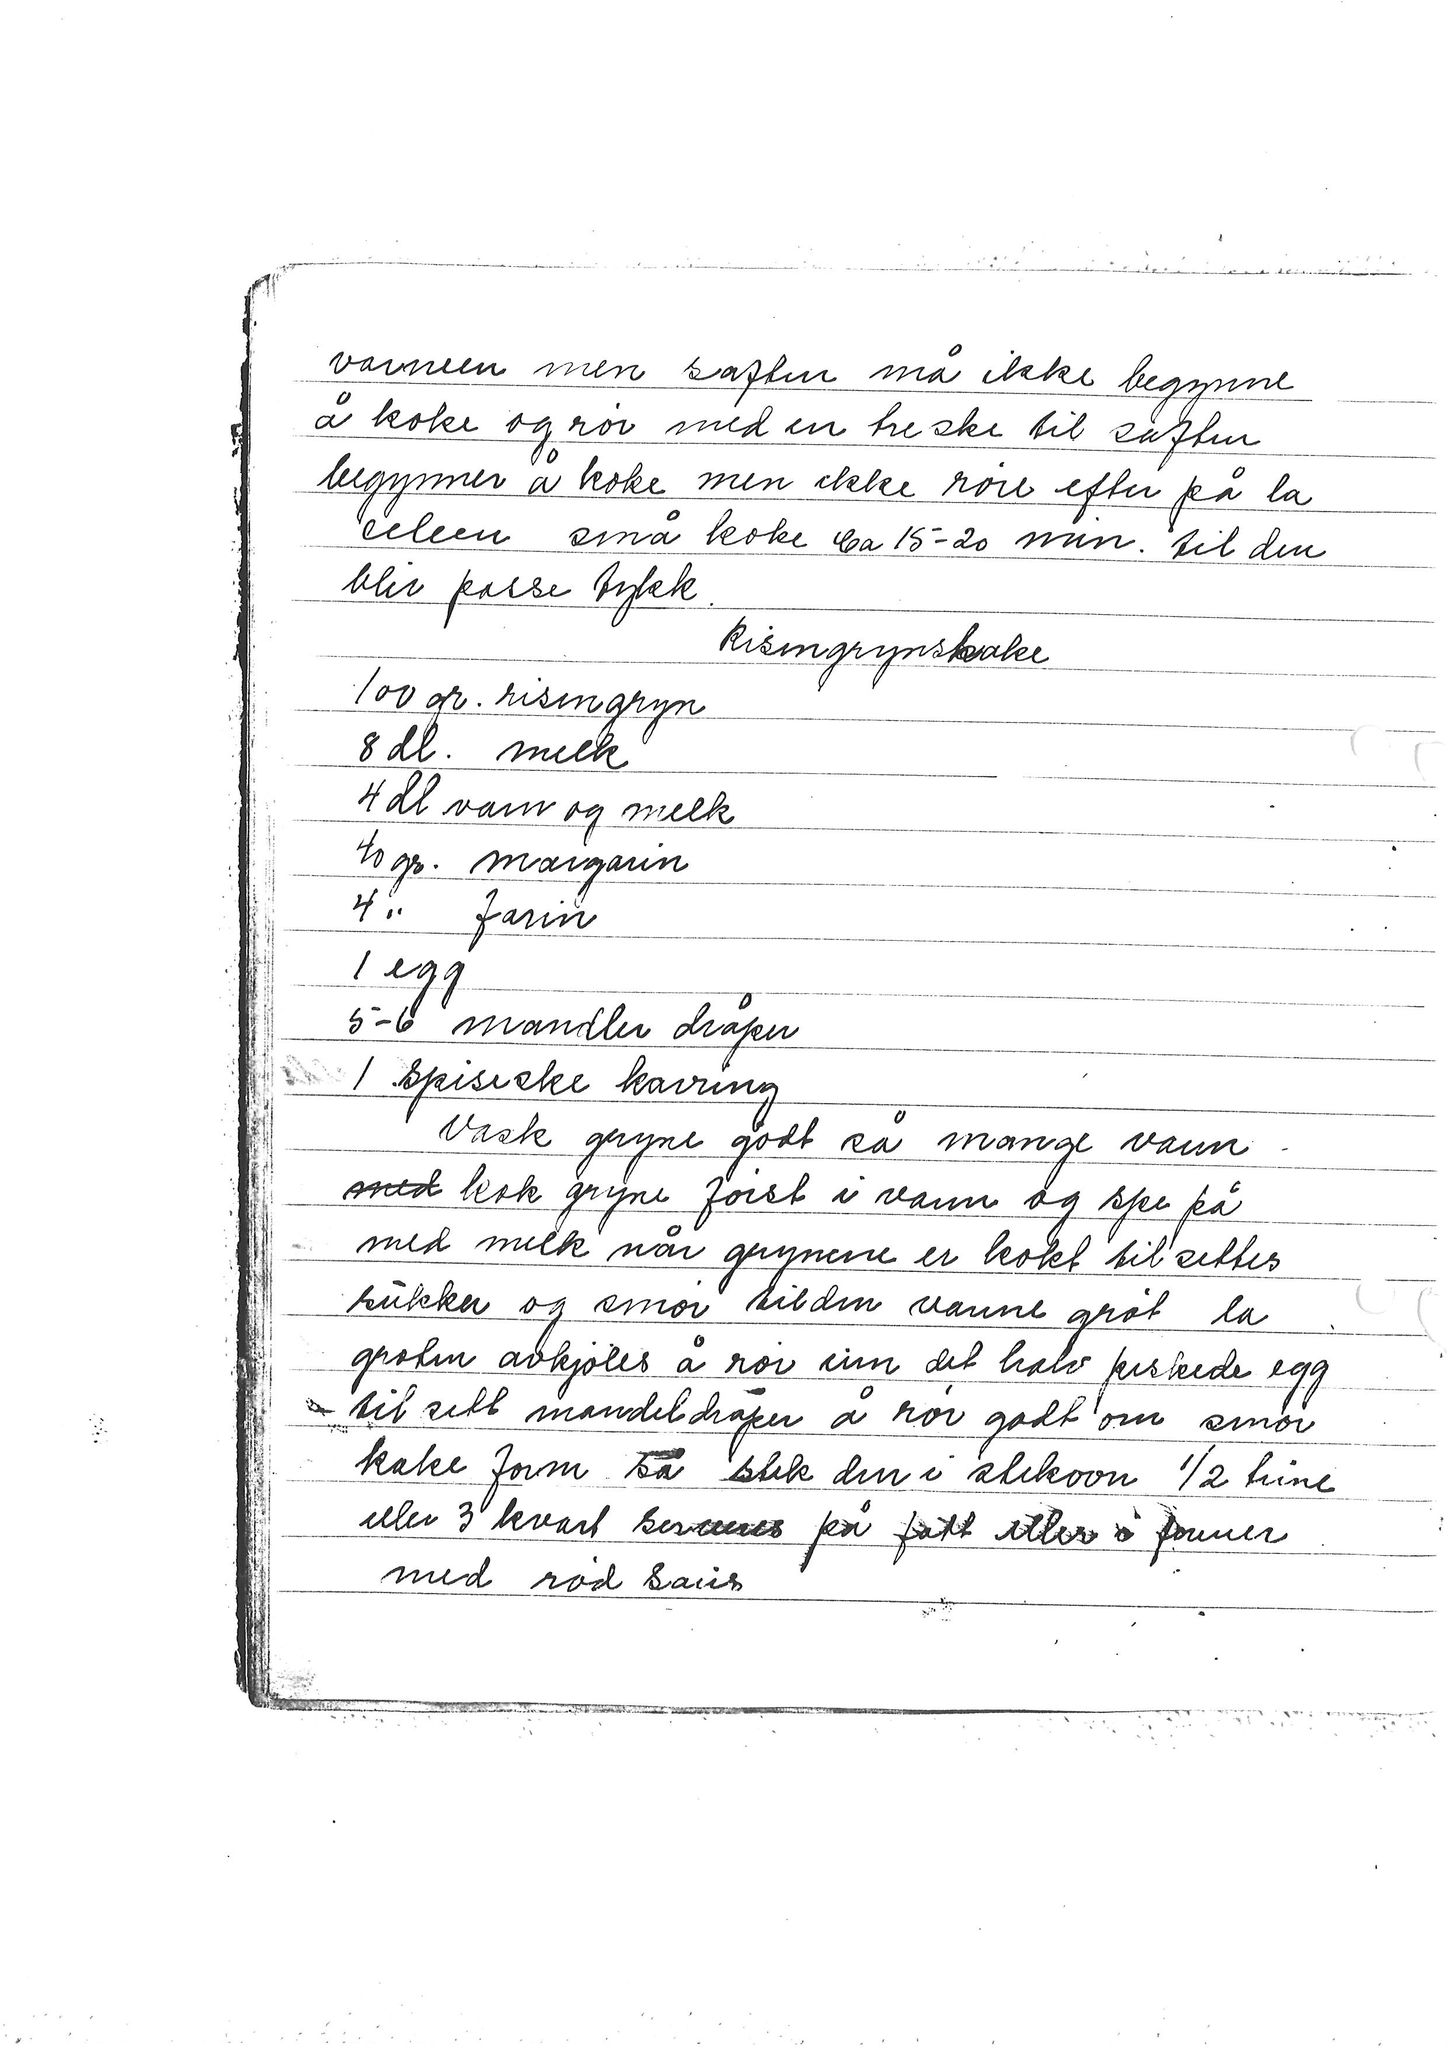 varmen men saften må ikke begynne
å koke og rör med en treske til saften
begynner å koke men ikke röre efter på la
seleen små koke ca 15-20 min. til den
blir passe tykk.
Risengrynskake
100 gr. risengryn
8 dl. melk
4 dl vann og melk
40 gr. margarin
4 " farin
1 egg
5-6 mandler dråper
1 spiseske kavring
Vask gryne godt så mange vann
med kok gryne först i vann og spe på
med melk når grynene er kokt tilsettes
sukker og smör til den varme gröt la
gröten avkjöles å rör inn det halv piskede egg
til sett mandeldråper å rör godt om smör
kake form så stek den i stekoon 1/2 time
eller 3 kvart serveres på fatt eller i former
med röd saus